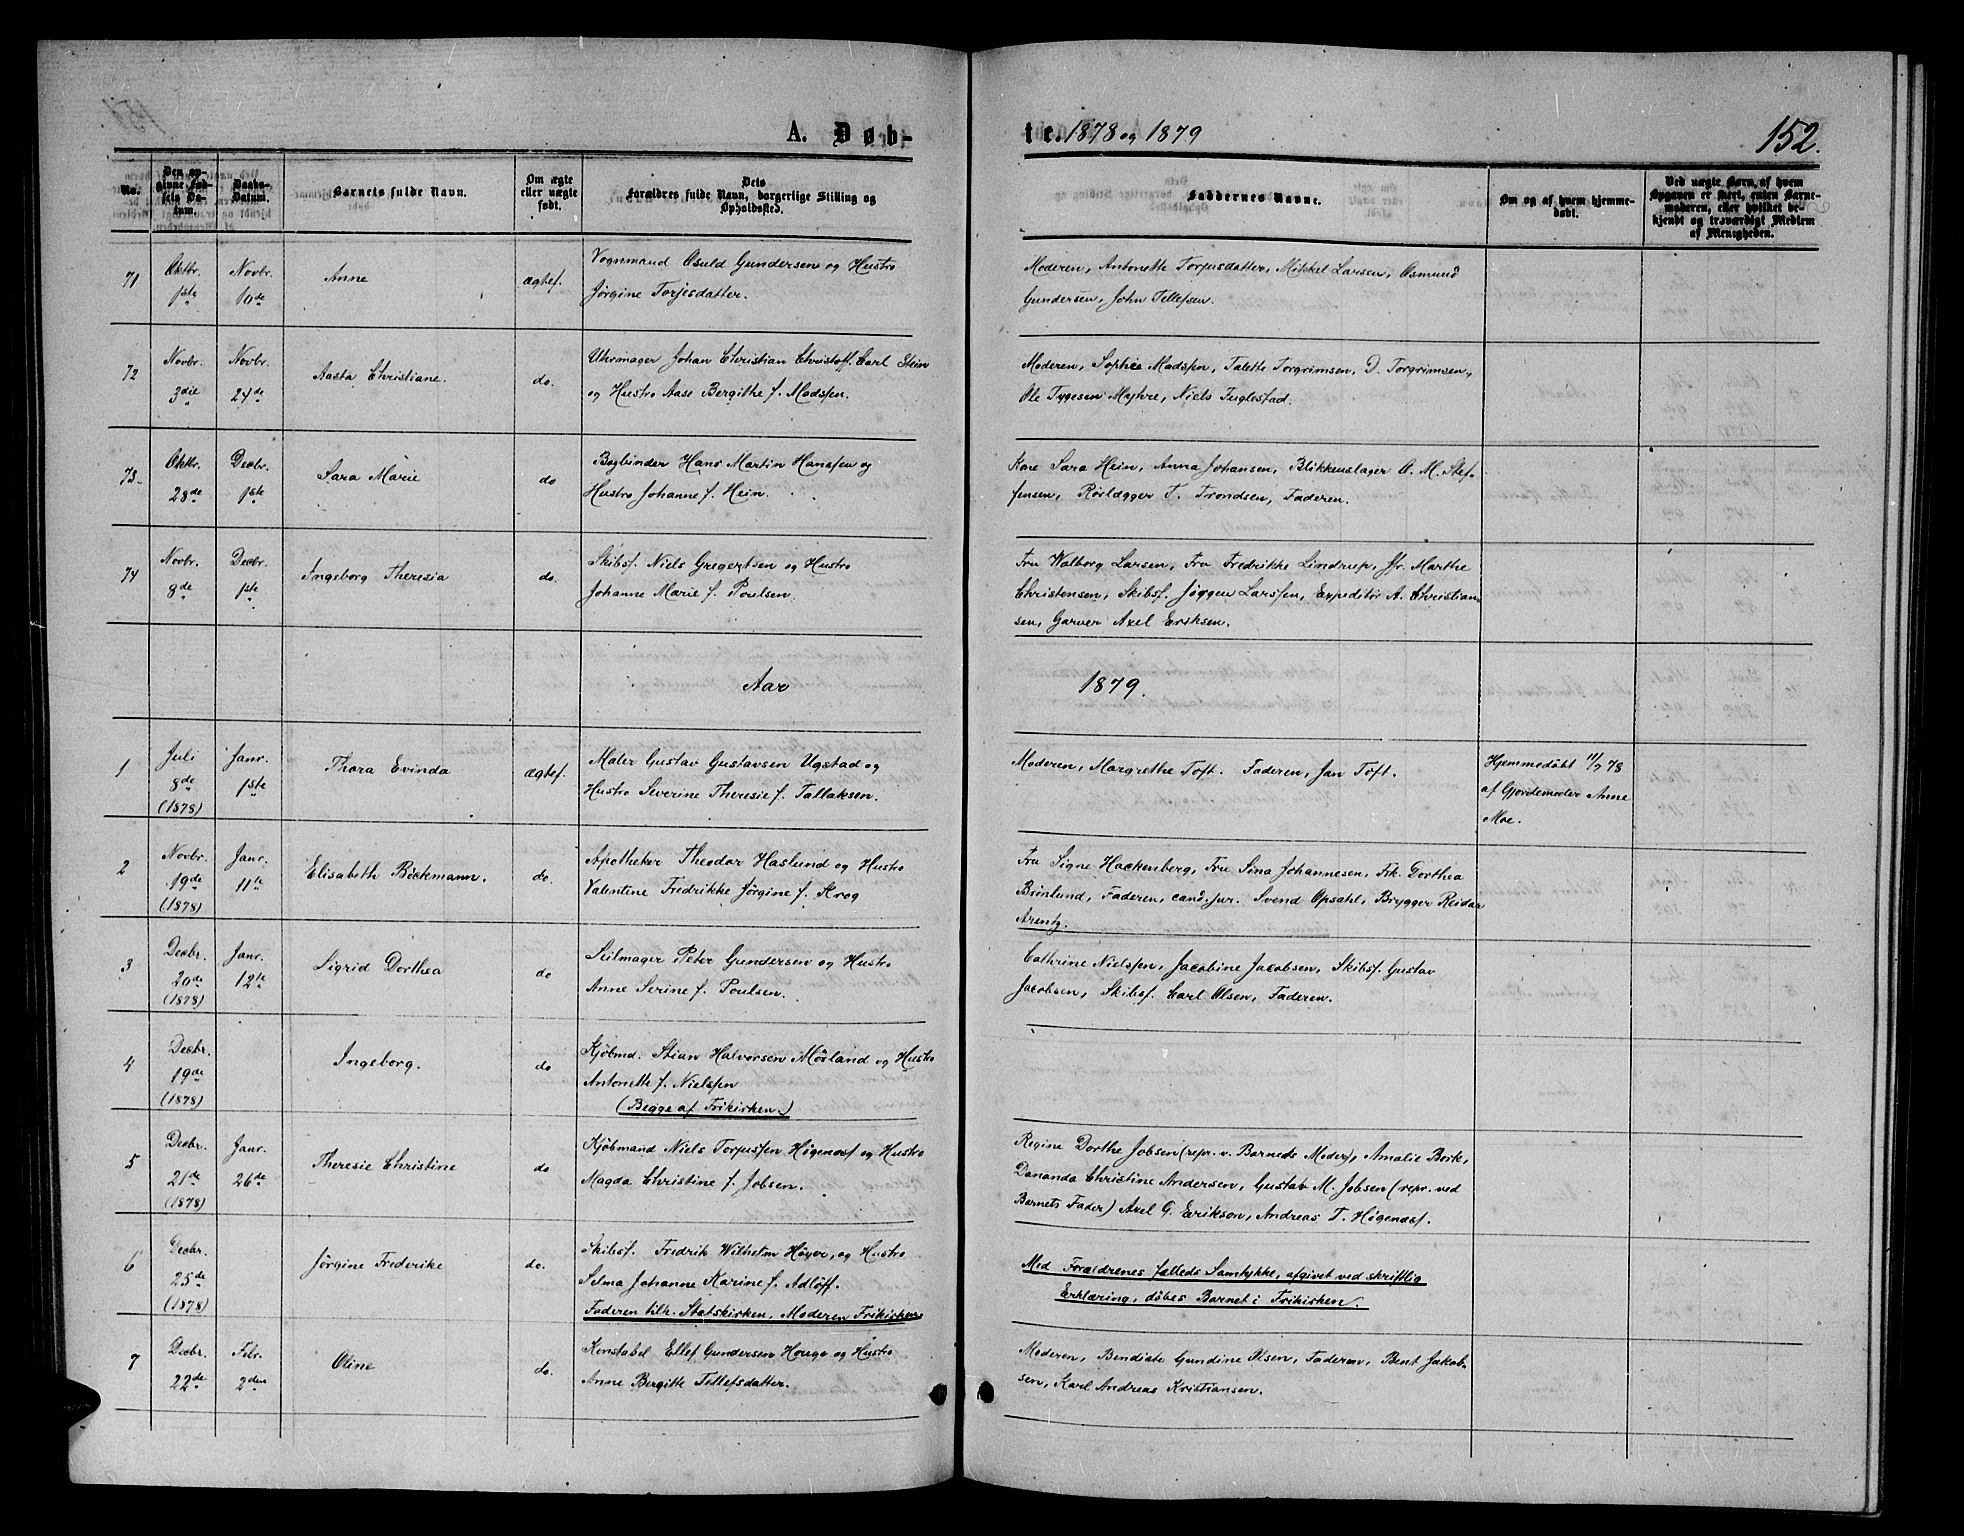 A. Døb-
te. 1878 og 1879
152.
No.
Den op-
givne Fød-
sels Da-
tum.
Daabs-
Datum.
Barnets fulde Navn.
Om ægte
eller uægte
født.
Dets
Forældres fulde Navn, borgerlige Stilling og
Opholdssted.
Faddernes Navne.
Om og af hvem hjemme-
døbt.
Ved uægte Børn, af hvem
Opgaven er skeet, enten Barne-
moderen, eller hvilket be-
kjendt og troværdigt Medlem
af Menigheden.
71
Oktbr.
1ste
Novbr.
10de
Anne
ægtef.
Vognmand Osuld Gundersen og Hustro
Jörgine Torjesdatter.
Moderen, Antonette Torjusdatter, Mikkel Larsen, Osmund
Gundersen, John Tellefsen.
72
Novbr.
3die
Novbr.
24de
Aasta Christiane.
do.
Uhrmager Johan Christian Christoff. Carl Stein
og Hustro Aase Bergithe f. Madssen.
Moderen, Sophie Madssen, Talette Torgrimsen, D. Torgrimsen,
Ole Tygesen Myhre, Niels Fuglestad.
73
Oktbr.
28de
Decbr.
1ste
Sara Marie
do
Bogbinder Hans Martin Hanssen og
Hustro Johanne f. Hein.
Kone Sara Hein, Anna Johansen, Blikkenslager O. M. Stef-
fensen, Rörlægger T. Trondsen, Faderen.
74
Novbr.
8de
Decbr.
1ste
Ingeborg Theresia
do.
Skibsf. Niels Gregertsen og Hustro
Johanne Marie f. Poulsen.
Fru Walborg Larsen, Fru Fredrikke Lindrup, Jfr. Marthe
Christensen, Skibsf. Jörgen Larssen, Expeditör A. Christian-
sen, Garver Axel Eriksen.
Aar
1879.
1
Juli
8de
(1878)
Janr.
1ste
Thora Evinda
ægtef.
Maler Gustav Gustavsen Ugstad og
Hustro Severine Theresie f. Tallaksen.
Moderen, Margrethe Toft. Faderen, Jan Toft.
Hjemmedöbt 11/7 78
af Gjordemoder Anne
Moe.
2
Novbr.
19de
(1878)
Janr.
11te
Elisabeth Böckmann.
do.
Apotheker Theodor Haslund og Hustro
Valentine Fredrikke Jörgine f. Krog
Fru Signe Hackenberg, Fru Sina Johannesen, Frk. Dorthea
Brönlund, Faderen, cand. jur. Svend Opsahl, Brygger Reidar
Arentz.
3
Decbr.
20de
(1878)
Janr.
12te
Sigrid Dorthea
do
Seilmager Peter Gundersen og Hustro
Anne Serine f. Poulsen.
Cathrine Nielssen, Jacobine Jacobsen, Skibsf. Gustav
Jacobsen, Skibsf. Carl Olsen, Faderen.
4
Decbr.
19de
(1878)
Ingeborg.
do
Kjöbmd. Stian Halvorsen Möland og Hustro
Antonette f. Nielssen
(Begge af Frikirken.)
5
Decbr.
21de
(1878)
Janr.
26de
Theresie Christine
do
Kjöbmand Niels Torjussen Högenæs og Hustro
Magda Christine f. Jobsen.
Regine Dorthe Jobsen (repr. v. Barnets Moder), Amalie Bork,
Dananda Christine Andersen, Gustav M. Jobsen (repr. ved
Barnets Fader) Axel G. Erikson, Andreas T. Högenæs.
6
Decbr.
25de
(1878)
Jörgine Frederike
do.
Skibsf. Fredrik Wilhelm Höyer, og Hustro
Selma Johanne Karine f. Adlöff.
Faderen tilh. Statskirken, Moderen Frikirken
Med Forældrenes fælleds Samtykke, afgivet ved skriftlig
Erklæring, döbes Barnet i Frikirken.
7
Decbr.
22de
Febr.
2den
Oline
do.
Konstabel Ellef Gundersen Houge og Hustro
Anne Bergitte Tellefsdatter.
Moderen, Bendiate Gundine Olsen, Faderen, Bent Jakob-
sen, Karl Andreas Kristiansen.